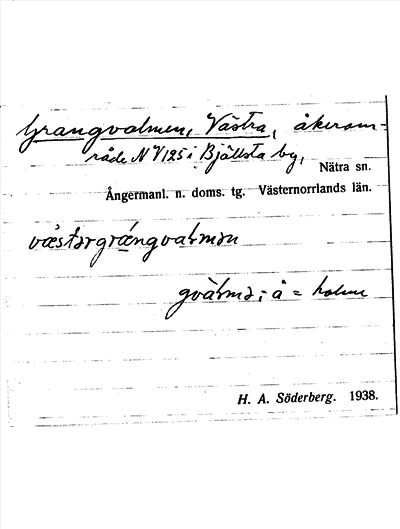 Grangvalmen, Västra, åkerom-
råde N V 125 i Bjällsta by,
Nätra sn.
Ångermanl. n. doms. tg. Västernorrlands län.
væstərgrængvaləmən
gvàləmə i å = holme
H. A. Söderberg. 1938.